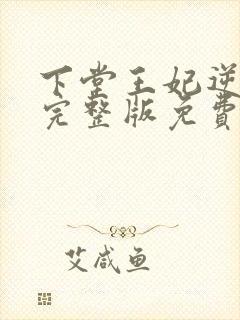 下堂王妃逆
完整版免费
艾咸鱼